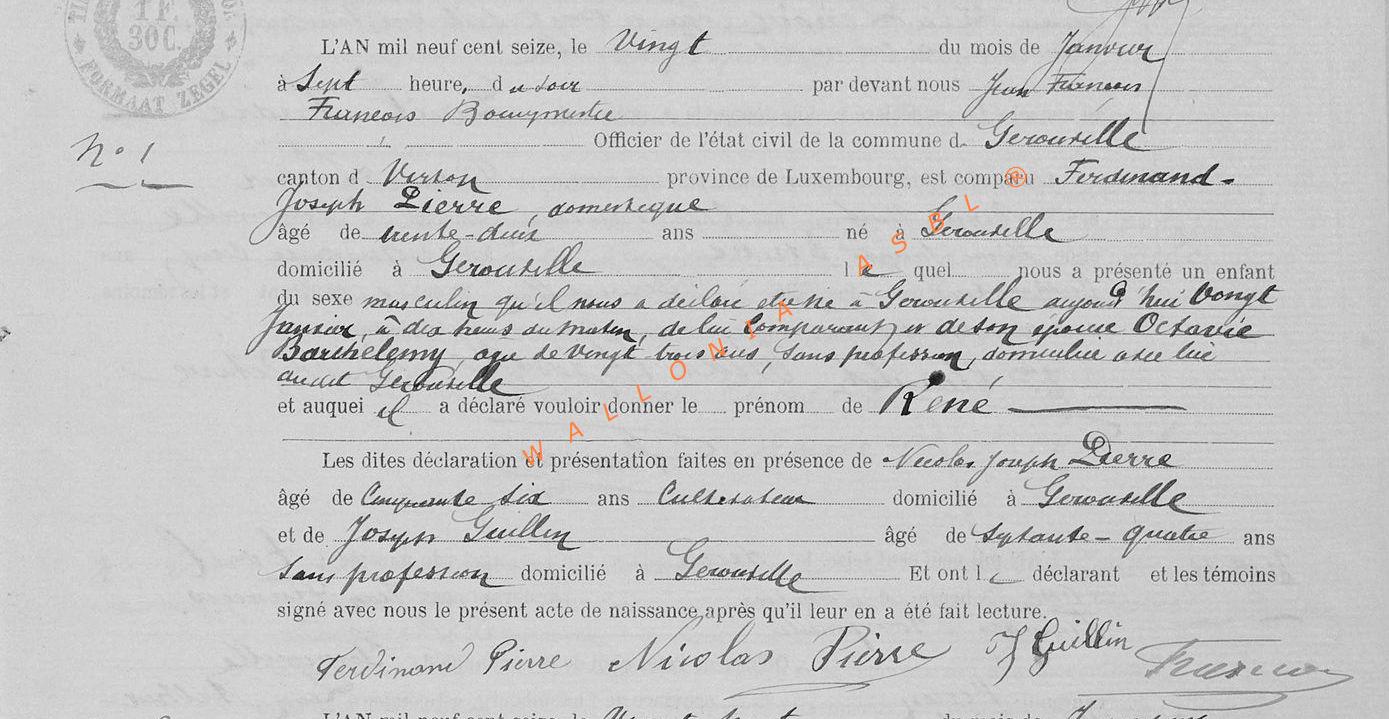 1 F.
30 C.
FORMAAT ZEGEL
L'AN mil neuf cent seize, le Vingt du mois de Janvier
à Sept heures, du soir par devant nous Jean François
François Bourgmestre
Officier de l'état civil de la commune de Gérouville
N° 1
canton de Virton province de Luxembourg, est comparu Ferdinand-
Joseph Pierre, domestique
âgé de trente-deux ans né à Gérouville
domicilié à Gérouville lequel nous a présenté un enfant
du sexe masculin qu'il nous a déclaré être né à Gérouville aujourd'hui Vingt
Janvier, à dix heures du matin, de lui comparant, et de son épouse Octavie
Barthélemy, agée de Vingt trois ans, Sans profession, domiciliée avec lui
audit Gérouville
et auquel il a déclaré vouloir donner le prénom de René
Les dites déclaration et présentation faites en présence de Nicolas Joseph Pierre
âgé de Cinquante six ans Cultivateur domicilié à Gérouville
et de Joseph Guillin âgé de Septante-quatre ans
Sans profession domicilié à Gérouville Et ont le déclarant et les témoins
signé avec nous le présent acte de naissance, après qu'il leur en a été fait lecture.
Ferdinand Pierre Nicolas Pierre J Guillin
WALLONIA ASBL ®
L'AN mil neuf cent seize, le du mois de